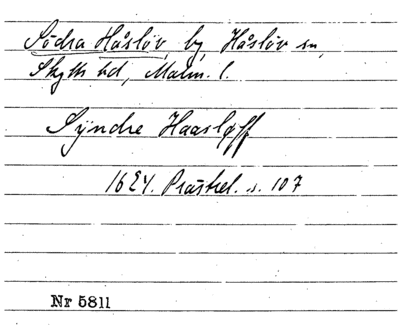 Södra Håslöv, by, Håslöv sn,
Skytts hd, Malm. l.
Syndre Haasløff
1624. Prästrel. s. 107
Nr 5811